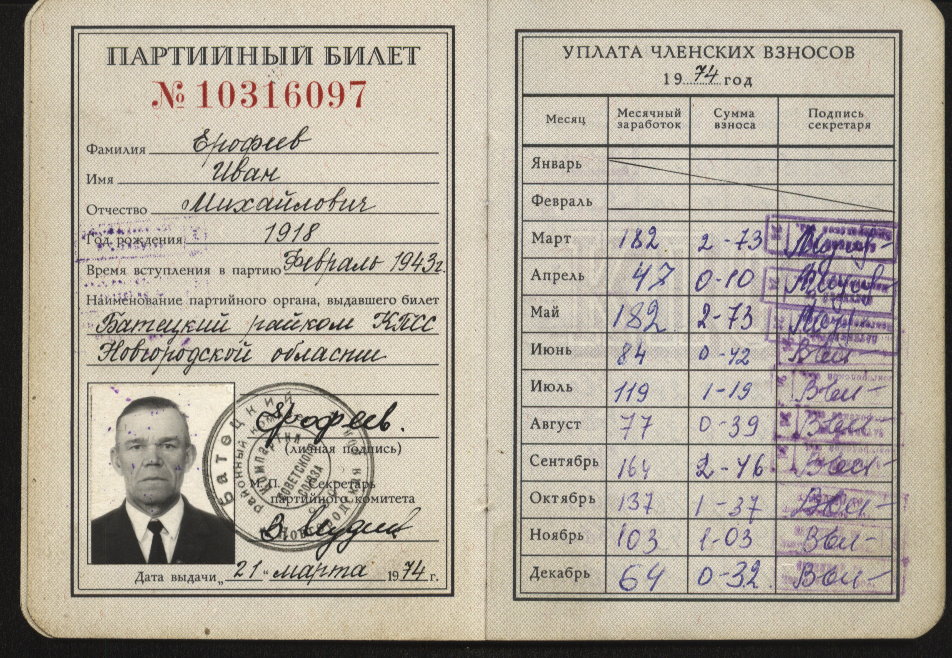 ПАРТИЙНЫЙ БИЛЕТ
№ 10316097
Фамилия Ерофеев
Имя Иван
Отчество Михайлович
Год рождения 1918
Время вступления в партию Февраль 1943г.
Наименование партийного органа, выдавшего билет
Батецкий райком КПСС
Новгородской области
Ерофеев.
(личная подпись)
М. П. Секретарь
партийного комитета
Дата выдачи „21“ марта 1974 г.
УПЛАТА ЧЛЕНСКИХ ВЗНОСОВ
1974 год
Месяц Месячный заработок Сумма взноса Подпись секретаря
Январь
Февраль
Март 182 2-73
Апрель 47 0-10
Май 182 2-73
Июнь 84 0-42
Июль 119 1-19
Август 77 0-39
Сентябрь 164 2-46
Октябрь 137 1-37
Ноябрь 103 1-03
Декабрь 64 0-32